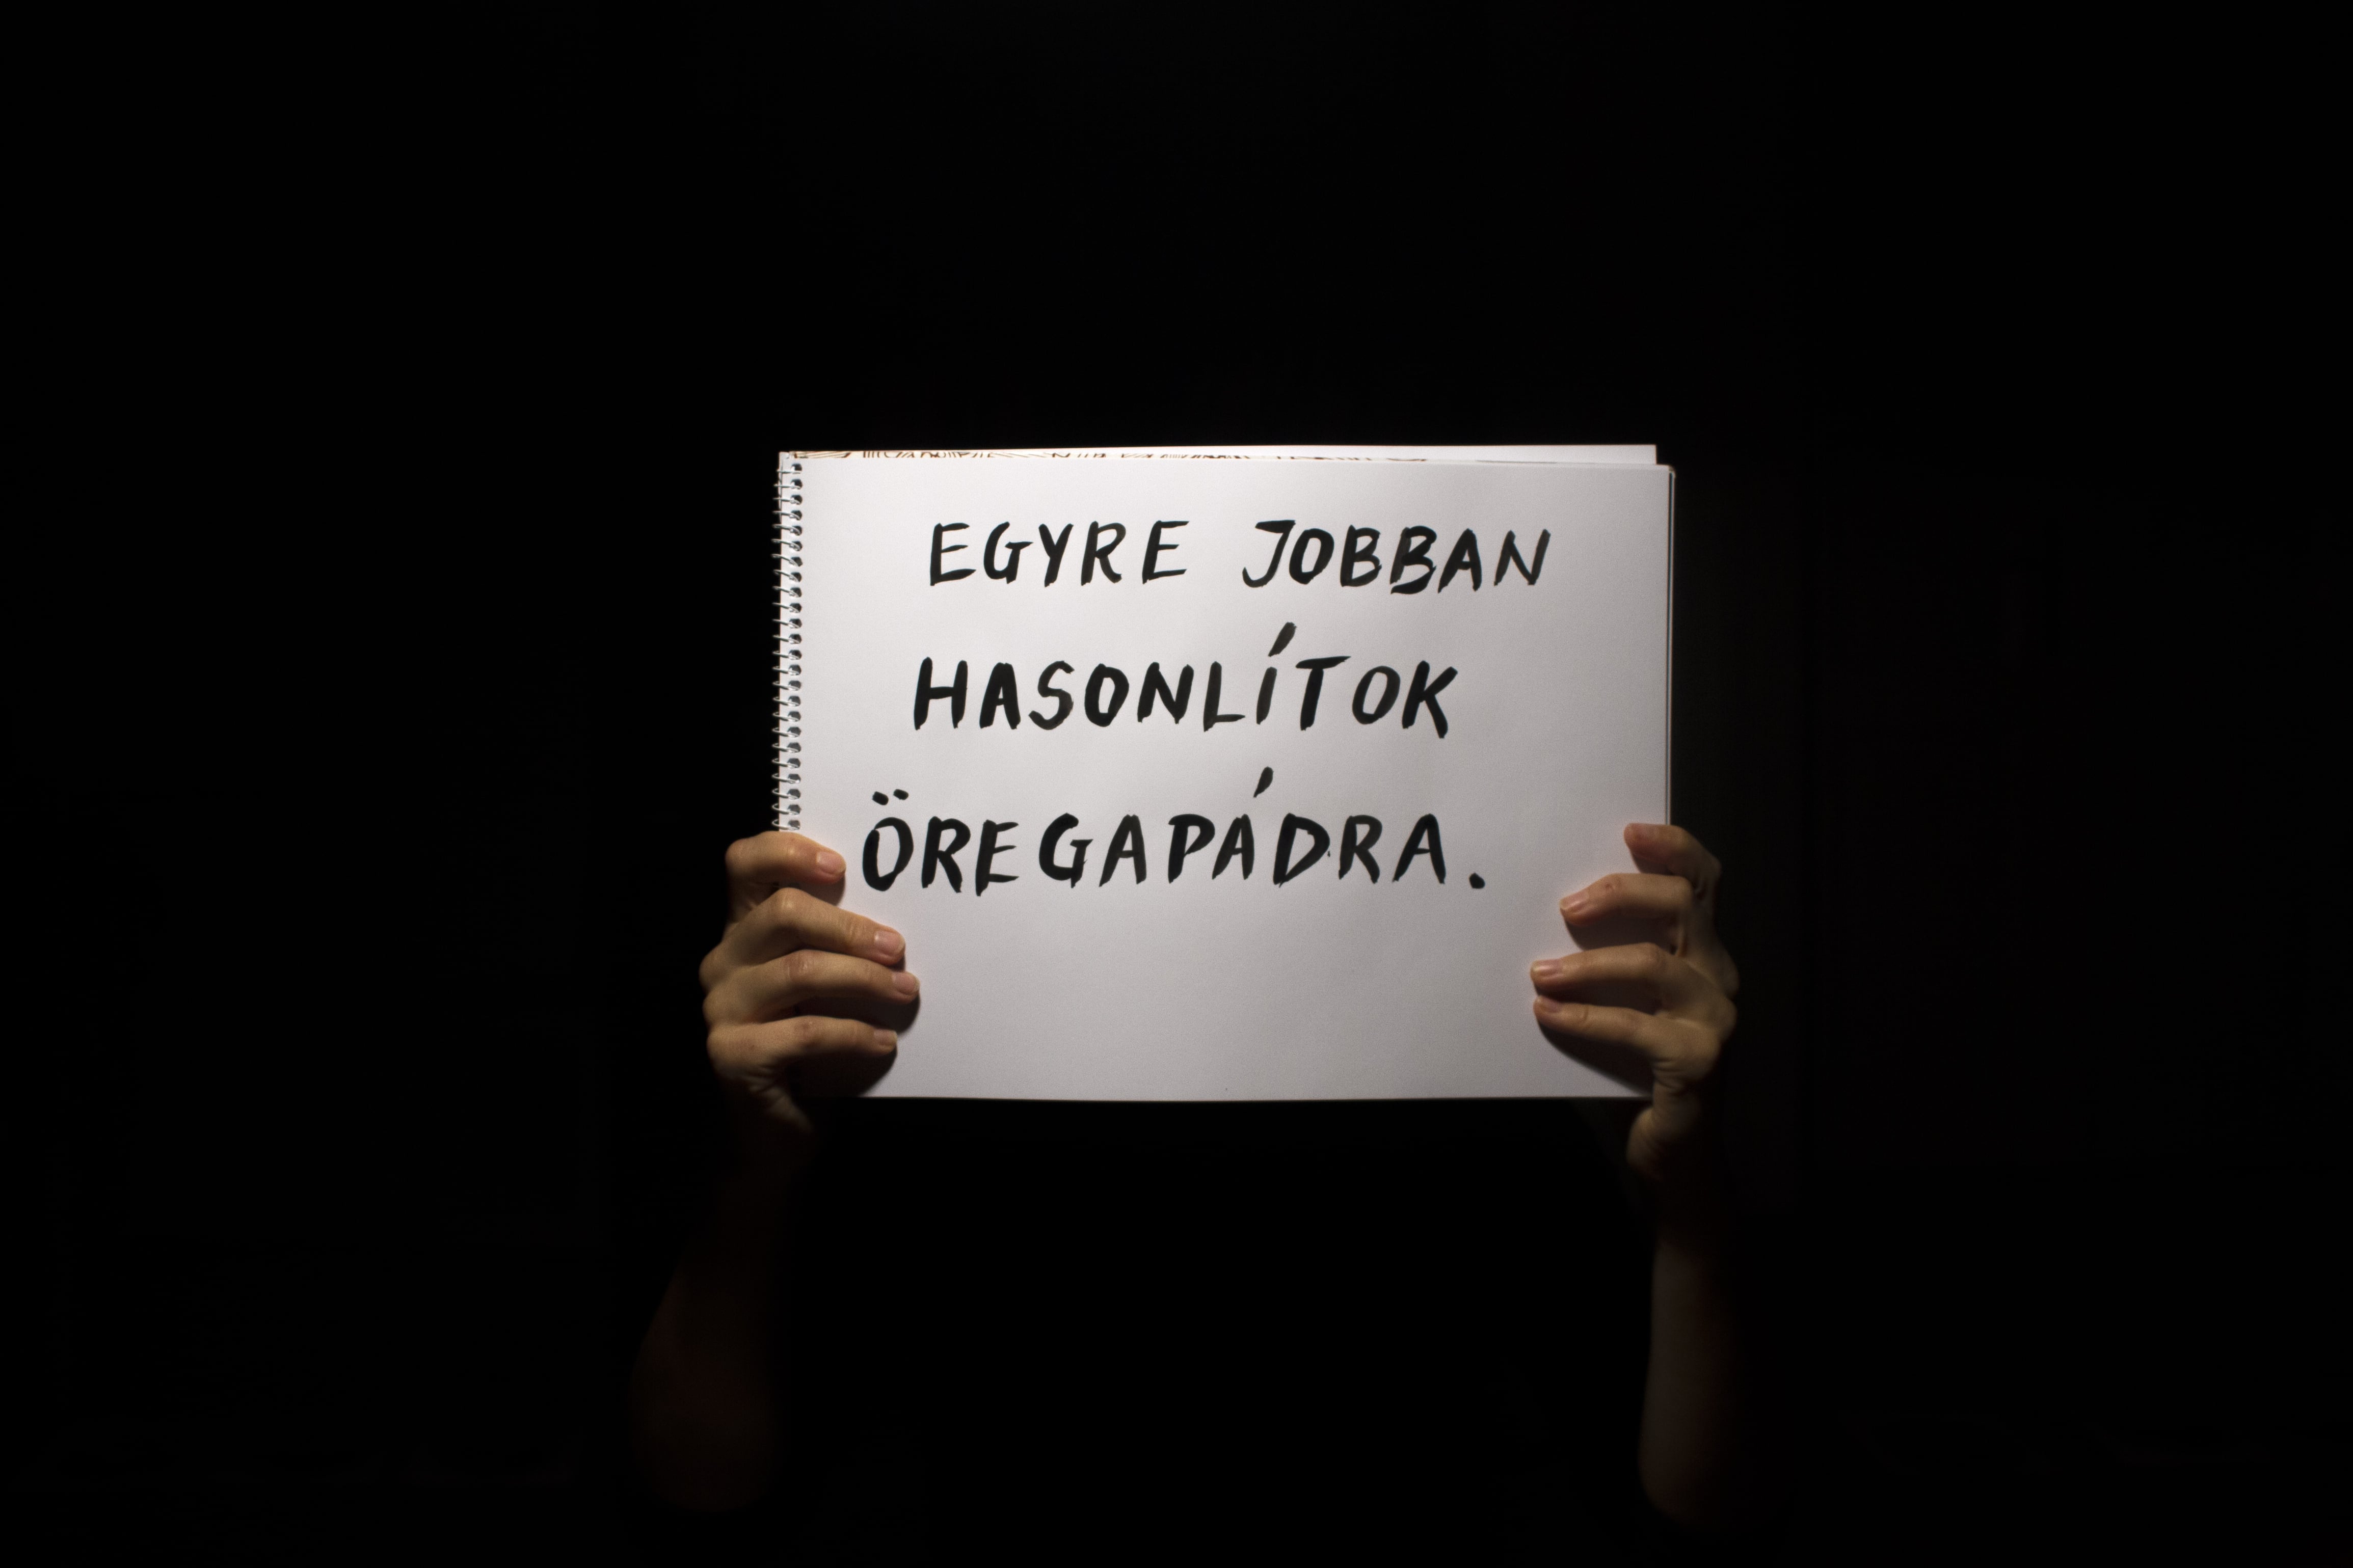 EGYRE JOBBAN
HASONLÍTOK
ÖREGAPÁDRA.